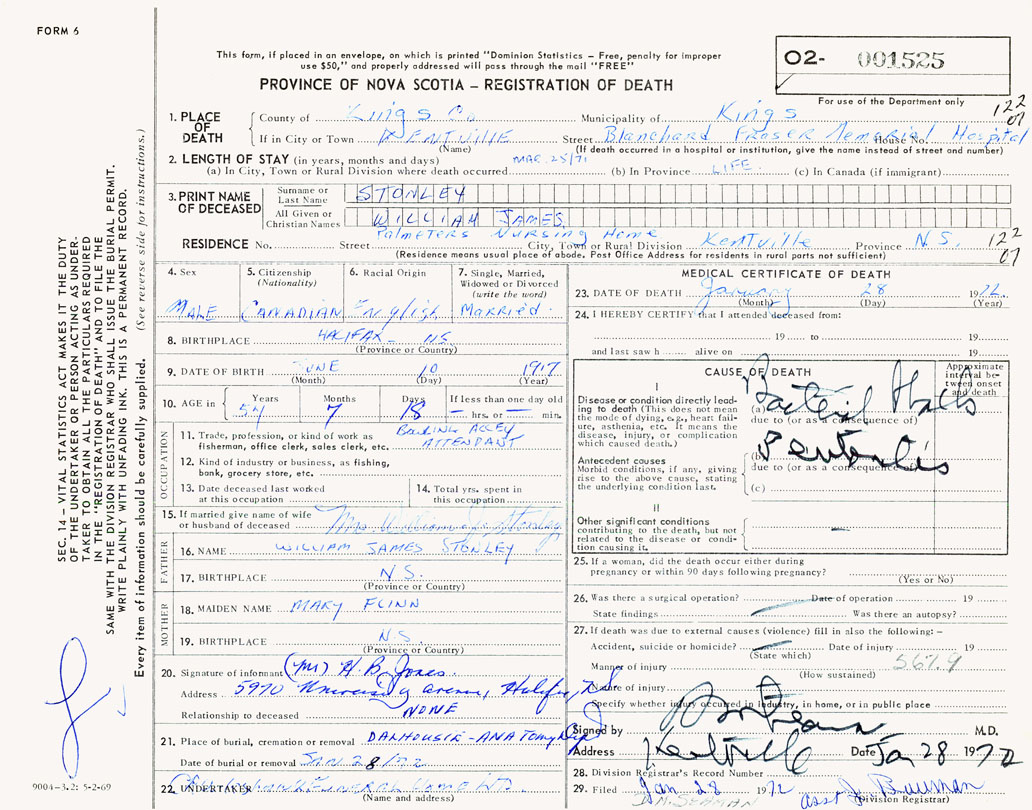 FORM 6
This form, if placed in an envelope, on which is printed "Dominion Statistics – Free, penalty for improper
use $50," and properly addressed will pass through the mail "FREE"
O2- 001525
PROVINCE OF NOVA SCOTIA – REGISTRATION OF DEATH
For use of the Department only
122
07
1. PLACE OF DEATH
County of Kings Co. Municipality of Kings
If in City or Town KENTVILLE Street Blanchard Fraser Memorial Hospital House No.
(Name) (If death occurred in a hospital or institution, give the name instead of street and number)
2. LENGTH OF STAY (in years, months and days)
(a) In City, Town or Rural Division where death occurred MAR. 25/71 (b) In Province LIFE. (c) In Canada (if immigrant)
3. PRINT NAME OF DECEASED
Surname or Last Name STONLEY
All Given or Christian Names WILLIAM JAMES
Palmeters Nursing Home
RESIDENCE No. Street City, Town or Rural Division Kentville Province N.S.
122
07
(Residence means usual place of abode. Post Office Address for residents in rural parts not sufficient)
4. Sex
Male
5. Citizenship
(Nationality)
Canadian
6. Racial Origin
English
7. Single, Married,
Widowed or Divorced
(write the word)
Married.
8. BIRTHPLACE HALIFAX – NS
(Province or Country)
9. DATE OF BIRTH JUNE 10 1917
(Month) (Day) (Year)
10. AGE in Years 54 Months 7 Days 18 If less than one day old — hrs. or — min.
OCCUPATION
11. Trade, profession, or kind of work as
fisherman, office clerk, sales clerk, etc. BOWLING ALLEY
ATTENDANT
12. Kind of industry or business, as fishing,
bank, grocery store, etc.
13. Date deceased last worked
at this occupation
14. Total yrs. spent in
this occupation
15. If married give name of wife
or husband of deceased Mrs. William J. Stonley
FATHER
16. NAME WILLIAM JAMES STONLEY
17. BIRTHPLACE N.S.
(Province or Country)
MOTHER
18. MAIDEN NAME MARY FLINN
19. BIRTHPLACE N.S.
(Province or Country)
20. Signature of informant (Mr) H. B. Jones
Address 5970 University Avenue, Halifax, N.S.
Relationship to deceased NONE
21. Place of burial, cremation or removal DALHOUSIE – ANATOMY Dep
Date of burial or removal JAN 28/72
22. UNDERTAKER Funeral Home
(Name and address)
MEDICAL CERTIFICATE OF DEATH
23. DATE OF DEATH January 28 1972.
(Month) (Day) (Year)
24. I HEREBY CERTIFY that I attended deceased from:
19 to 19
and last saw h alive on 19
CAUSE OF DEATH
Approximate
interval be-
tween onset
and death
I
Disease or condition directly lead-
ing to death (This does not mean
the mode of dying, e.g., heart fail-
ure, asthenia, etc. It means the
disease, injury, or complication
which caused death.)
(a) Bacterial
due to (or as a consequence of)
Antecedent causes
Morbid conditions, if any, giving
rise to the above cause, stating
the underlying condition last.
(b)
due to (or as a consequence of)
(c)
II
Other significant conditions
contributing to the death, but not
related to the disease or condi-
tion causing it.
—
25. If a woman, did the death occur either during
pregnancy or within 90 days following pregnancy?
(Yes or No)
26. Was there a surgical operation? Date of operation 19
State findings Was there an autopsy?
27. If death was due to external causes (violence) fill in also the following: –
Accident, suicide or homicide? Date of injury 19
(State which)
Manner of injury 567.9
(How sustained)
Nature of injury
Specify whether injury occurred in industry, in home, or in public place
Signed by M.D.
Address Kentville Date Jan 28 1972
28. Division Registrar's Record Number
29. Filed Jan 28 1972 asst J. Bauman
(Division Registrar)
SEC. 14 – VITAL STATISTICS ACT MAKES IT THE DUTY
OF THE UNDERTAKER OR PERSON ACTING AS UNDER-
TAKER TO OBTAIN ALL THE PARTICULARS REQUIRED
IN THE "REGISTRATION OF DEATH" AND TO FILE THE
SAME WITH THE DIVISION REGISTRAR WHO SHALL ISSUE THE BURIAL PERMIT.
WRITE PLAINLY WITH UNFADING INK. THIS IS A PERMANENT RECORD.
Every item of information should be carefully supplied. (See reverse side for instructions.)
9004-3.2: 5-2-69